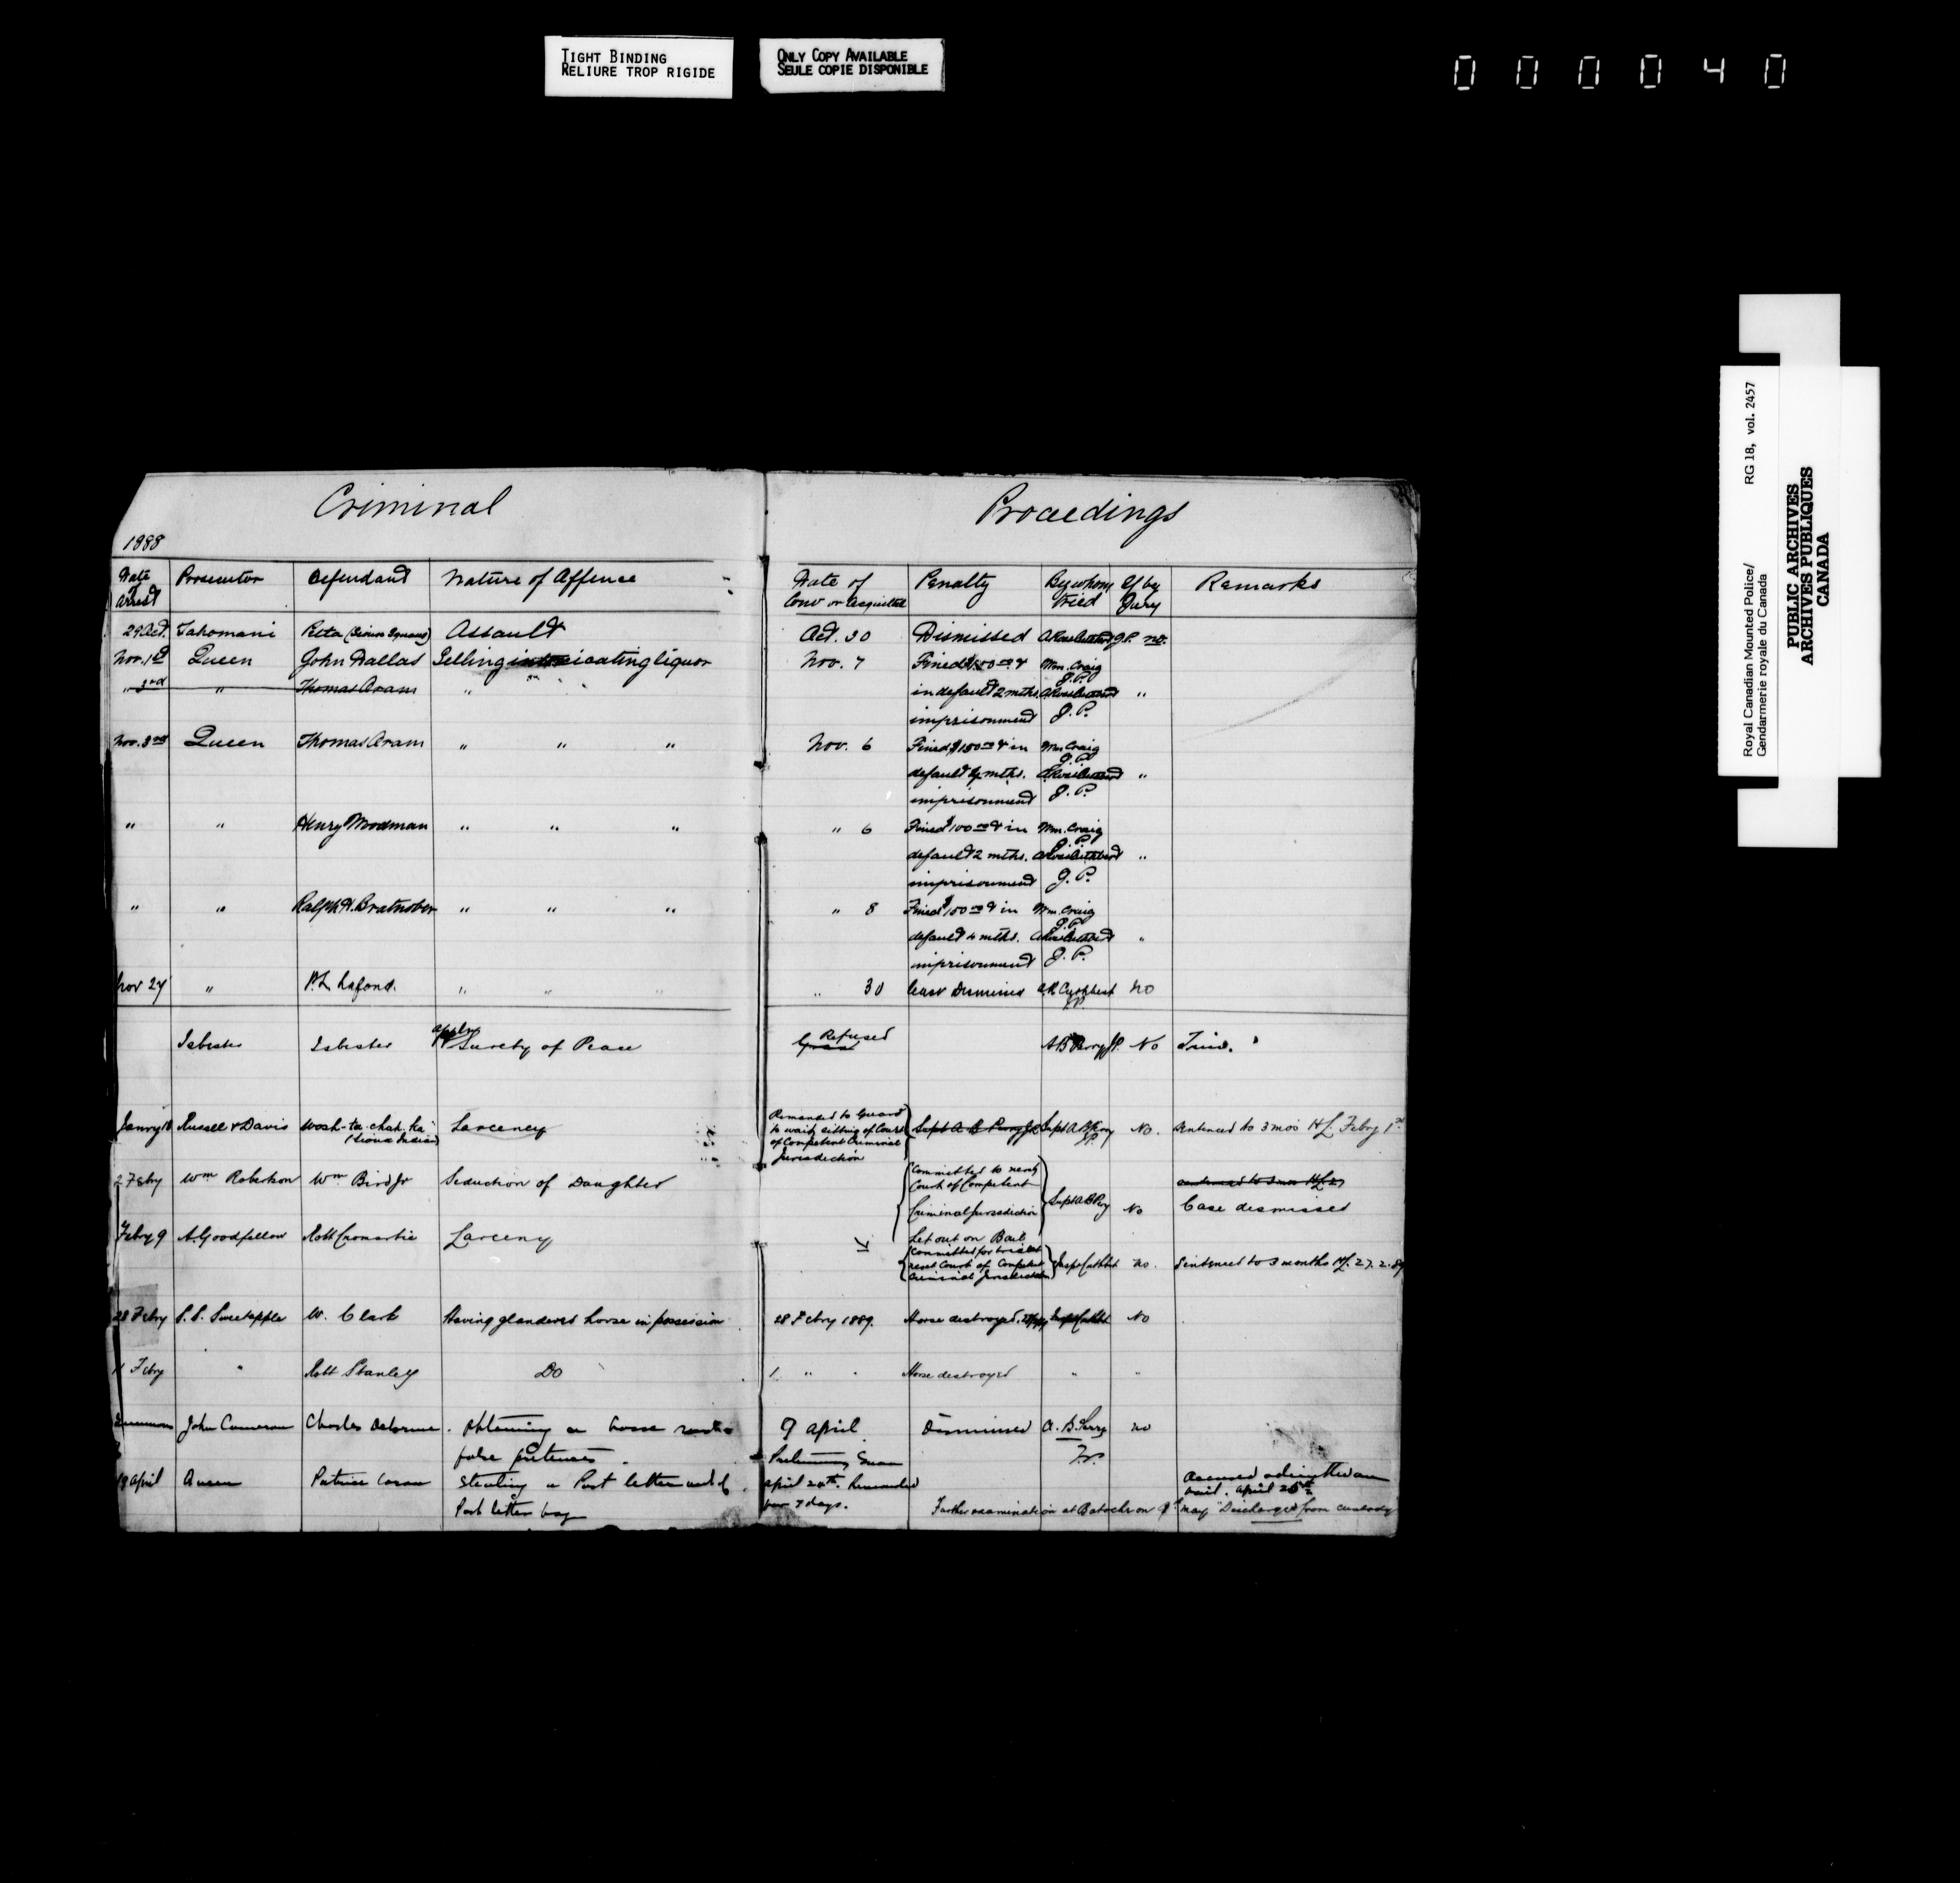 TIGHT BINDING
RELIURE TROP RIGIDE
ONLY COPY AVAILABLE
SEULE COPIE DISPONIBLE
0 0 0 0 4 0
Royal Canadian Mounted Police/ RG 18, vol. 2457
Gendarmerie royale du Canada
PUBLIC ARCHIVES
ARCHIVES PUBLIQUES
CANADA
Criminal Proceedings
1888
Date of Arrest Prosecutor Defendant Nature of Offence Date of Conv or Acquittal Penalty By whom tried If by Jury Remarks
29 Oct. Tahomani Reta (Sioux Squaw) Assault Oct. 30 Dismissed J.P. no.
Nov. 1st Queen John Dallas Selling intoxicating liquor Nov. 7 Fined $100.00 & Wm. Craig J.P.
" 3rd " Thomas Aram " in default 2 mths. "
imprisonment J.P.
Nov. 3rd Queen Thomas Aram " " " Nov. 6 Fined $100.00 & in Wm. Craig J.P.
default mths. "
imprisonment J.P.
" " Henry Woodman " " " " 6 Fined $100.00 & in Wm. Craig J.P.
default 2 mths. "
imprisonment J.P.
" " Ralph H. Bratnober " " " " 8 Fined $100.00 & in Wm. Craig J.P.
default 4 mths. "
imprisonment J.P.
Nov 27 " P.L. Lafond. " " " " 30 Case Dismissed A.R. Cuthbert J.P. No
Isbester Isbester apply Surety of Peace Refused A B Perry J.P. No
Janry 18 Russell & Davis Wash-ta-chah-ka (Sioux Indian) Larceney
Remanded to Guard
to wait sitting of Court
of Competent Criminal
Jurisdiction
Supt A B Perry J.P. Supt A B Perry J.P. No. Sentenced to 3 mos HL Febry 1st
2 Febry Wm Robertson Wm Bird Jr Seduction of Daughter
Committed to next
Court of Competent
Criminal Jurisdiction
Let out on Bail
Supt A B Perry No sentenced to 3 mos HL
Case dismissed
Febry 9 A. Goodfellow Robt Cromartie Larceny
Committed for trial at
next Court of Competent
Criminal Jurisdiction
Inspr Cuthbert no. Sentenced to 3 months HL 27.2.89
28 Febry S.S. Sweetapple W. Clark Having glandered horse in possession 28 Febry 1889. Horse destroyed. Inspr Cuthbert No
Febry " Robt Stanley Do 1 " " Horse destroyed " "
Summons John Cameron Charles Delorme Obtaining a horse under 9 April Dismissed A. B. Perry no
false pretences. J.P.
19 April Queen Patrice Caron Stealing a Post letter and Preliminary Exam
Post letter bag April 20th. Remanded
for 7 days.
Accused admitted on
bail. April 20th
Further examination at Batoche on 9th May "Discharged from custody